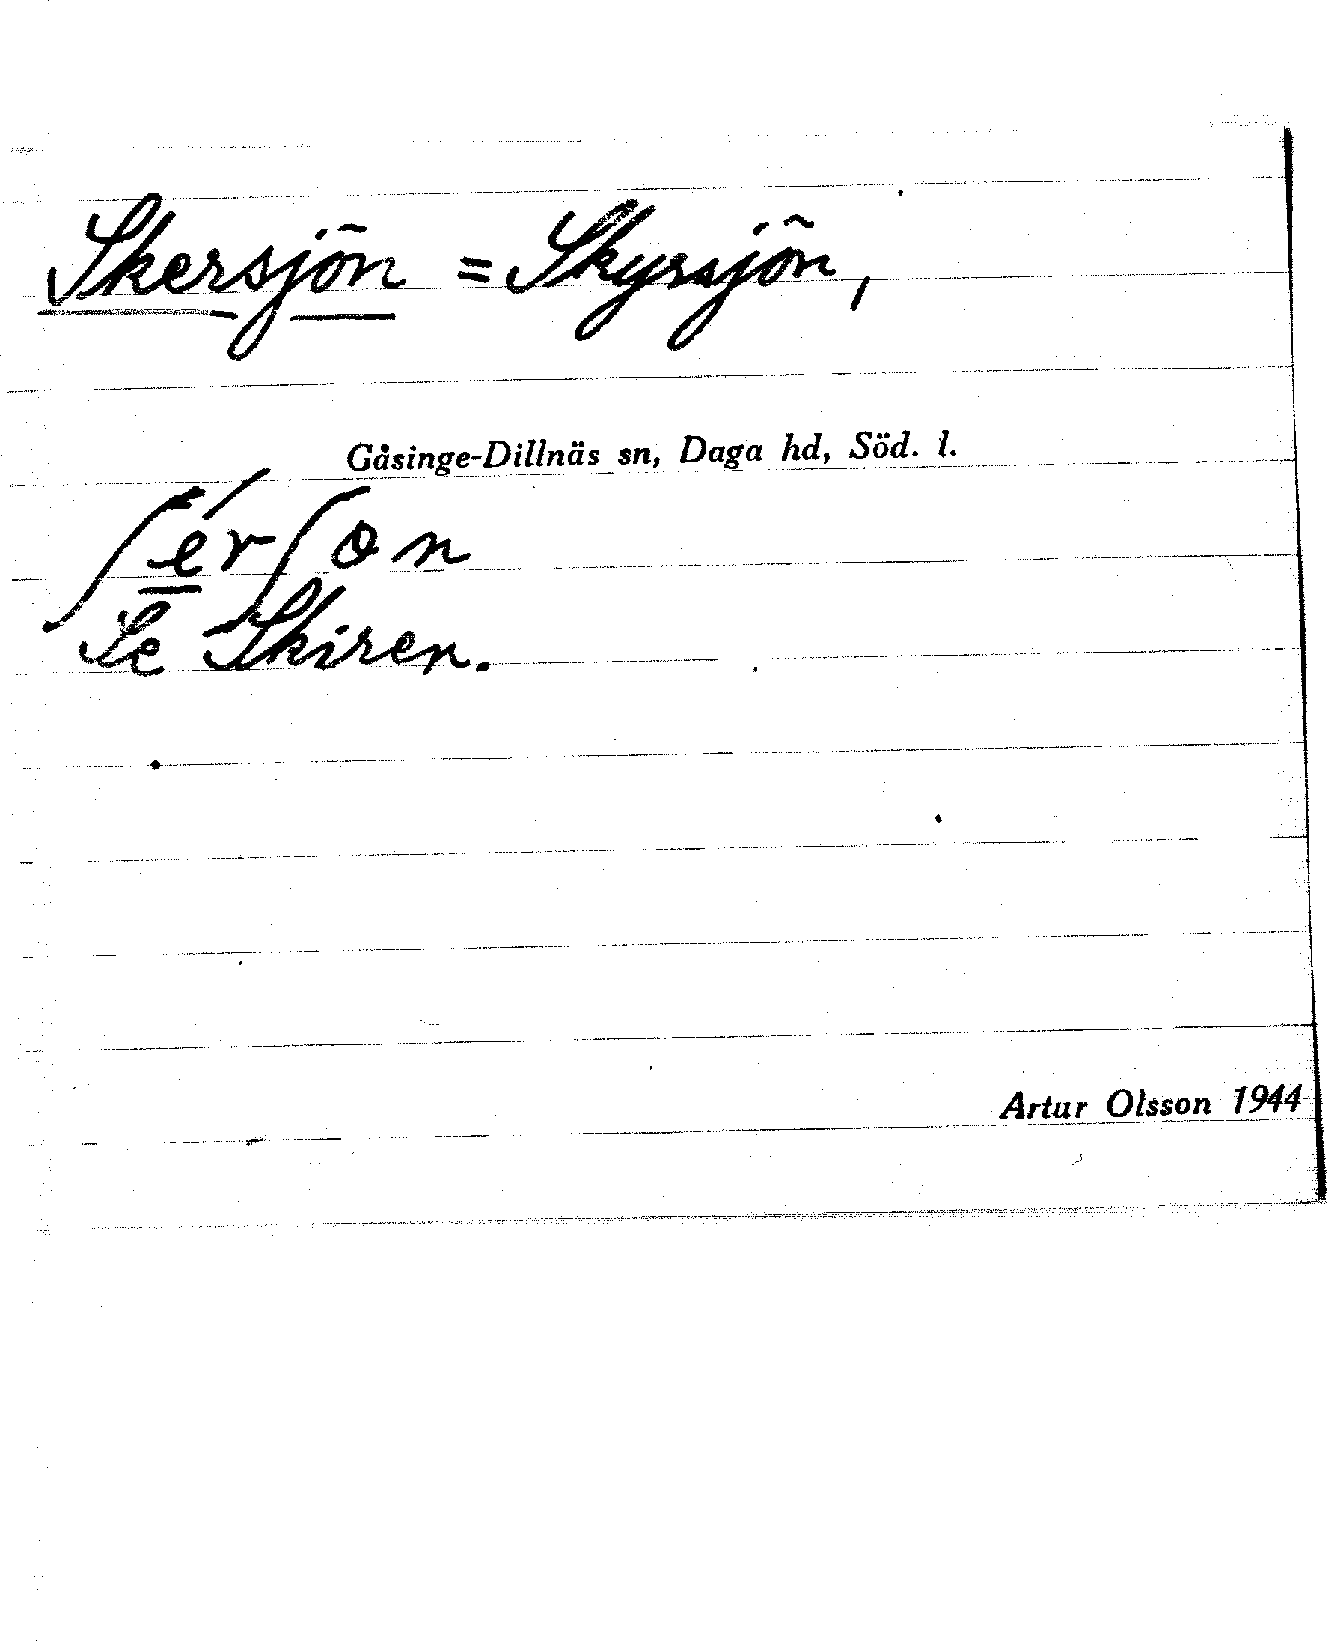 Skersjön = Skyrsjön,
Gåsinge-Dillnäs sn, Daga hd, Söd. l.
ʃérʃɵn
Se Skiren.
Artur Olsson 1944